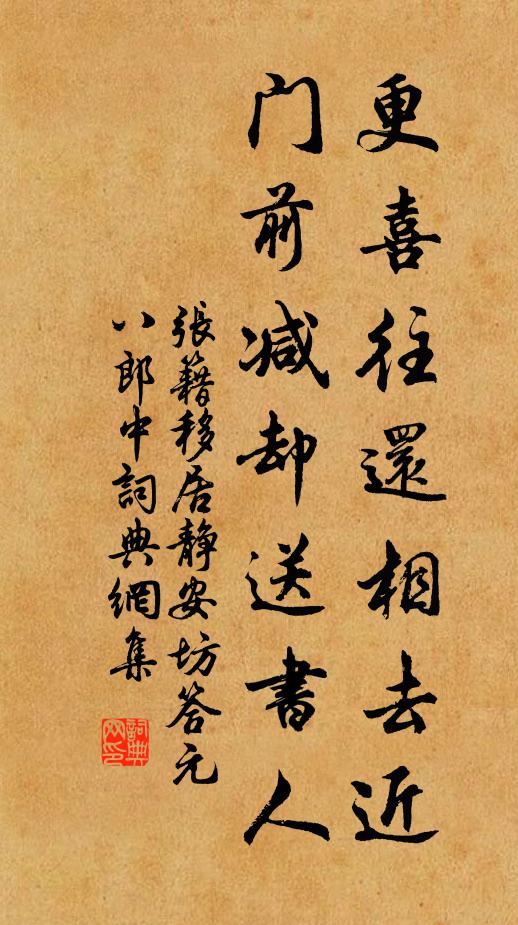 更喜往還相去近
門前減却送書人
張籍移居靜安坊答元
八郎中詞典網集
詞典
网印